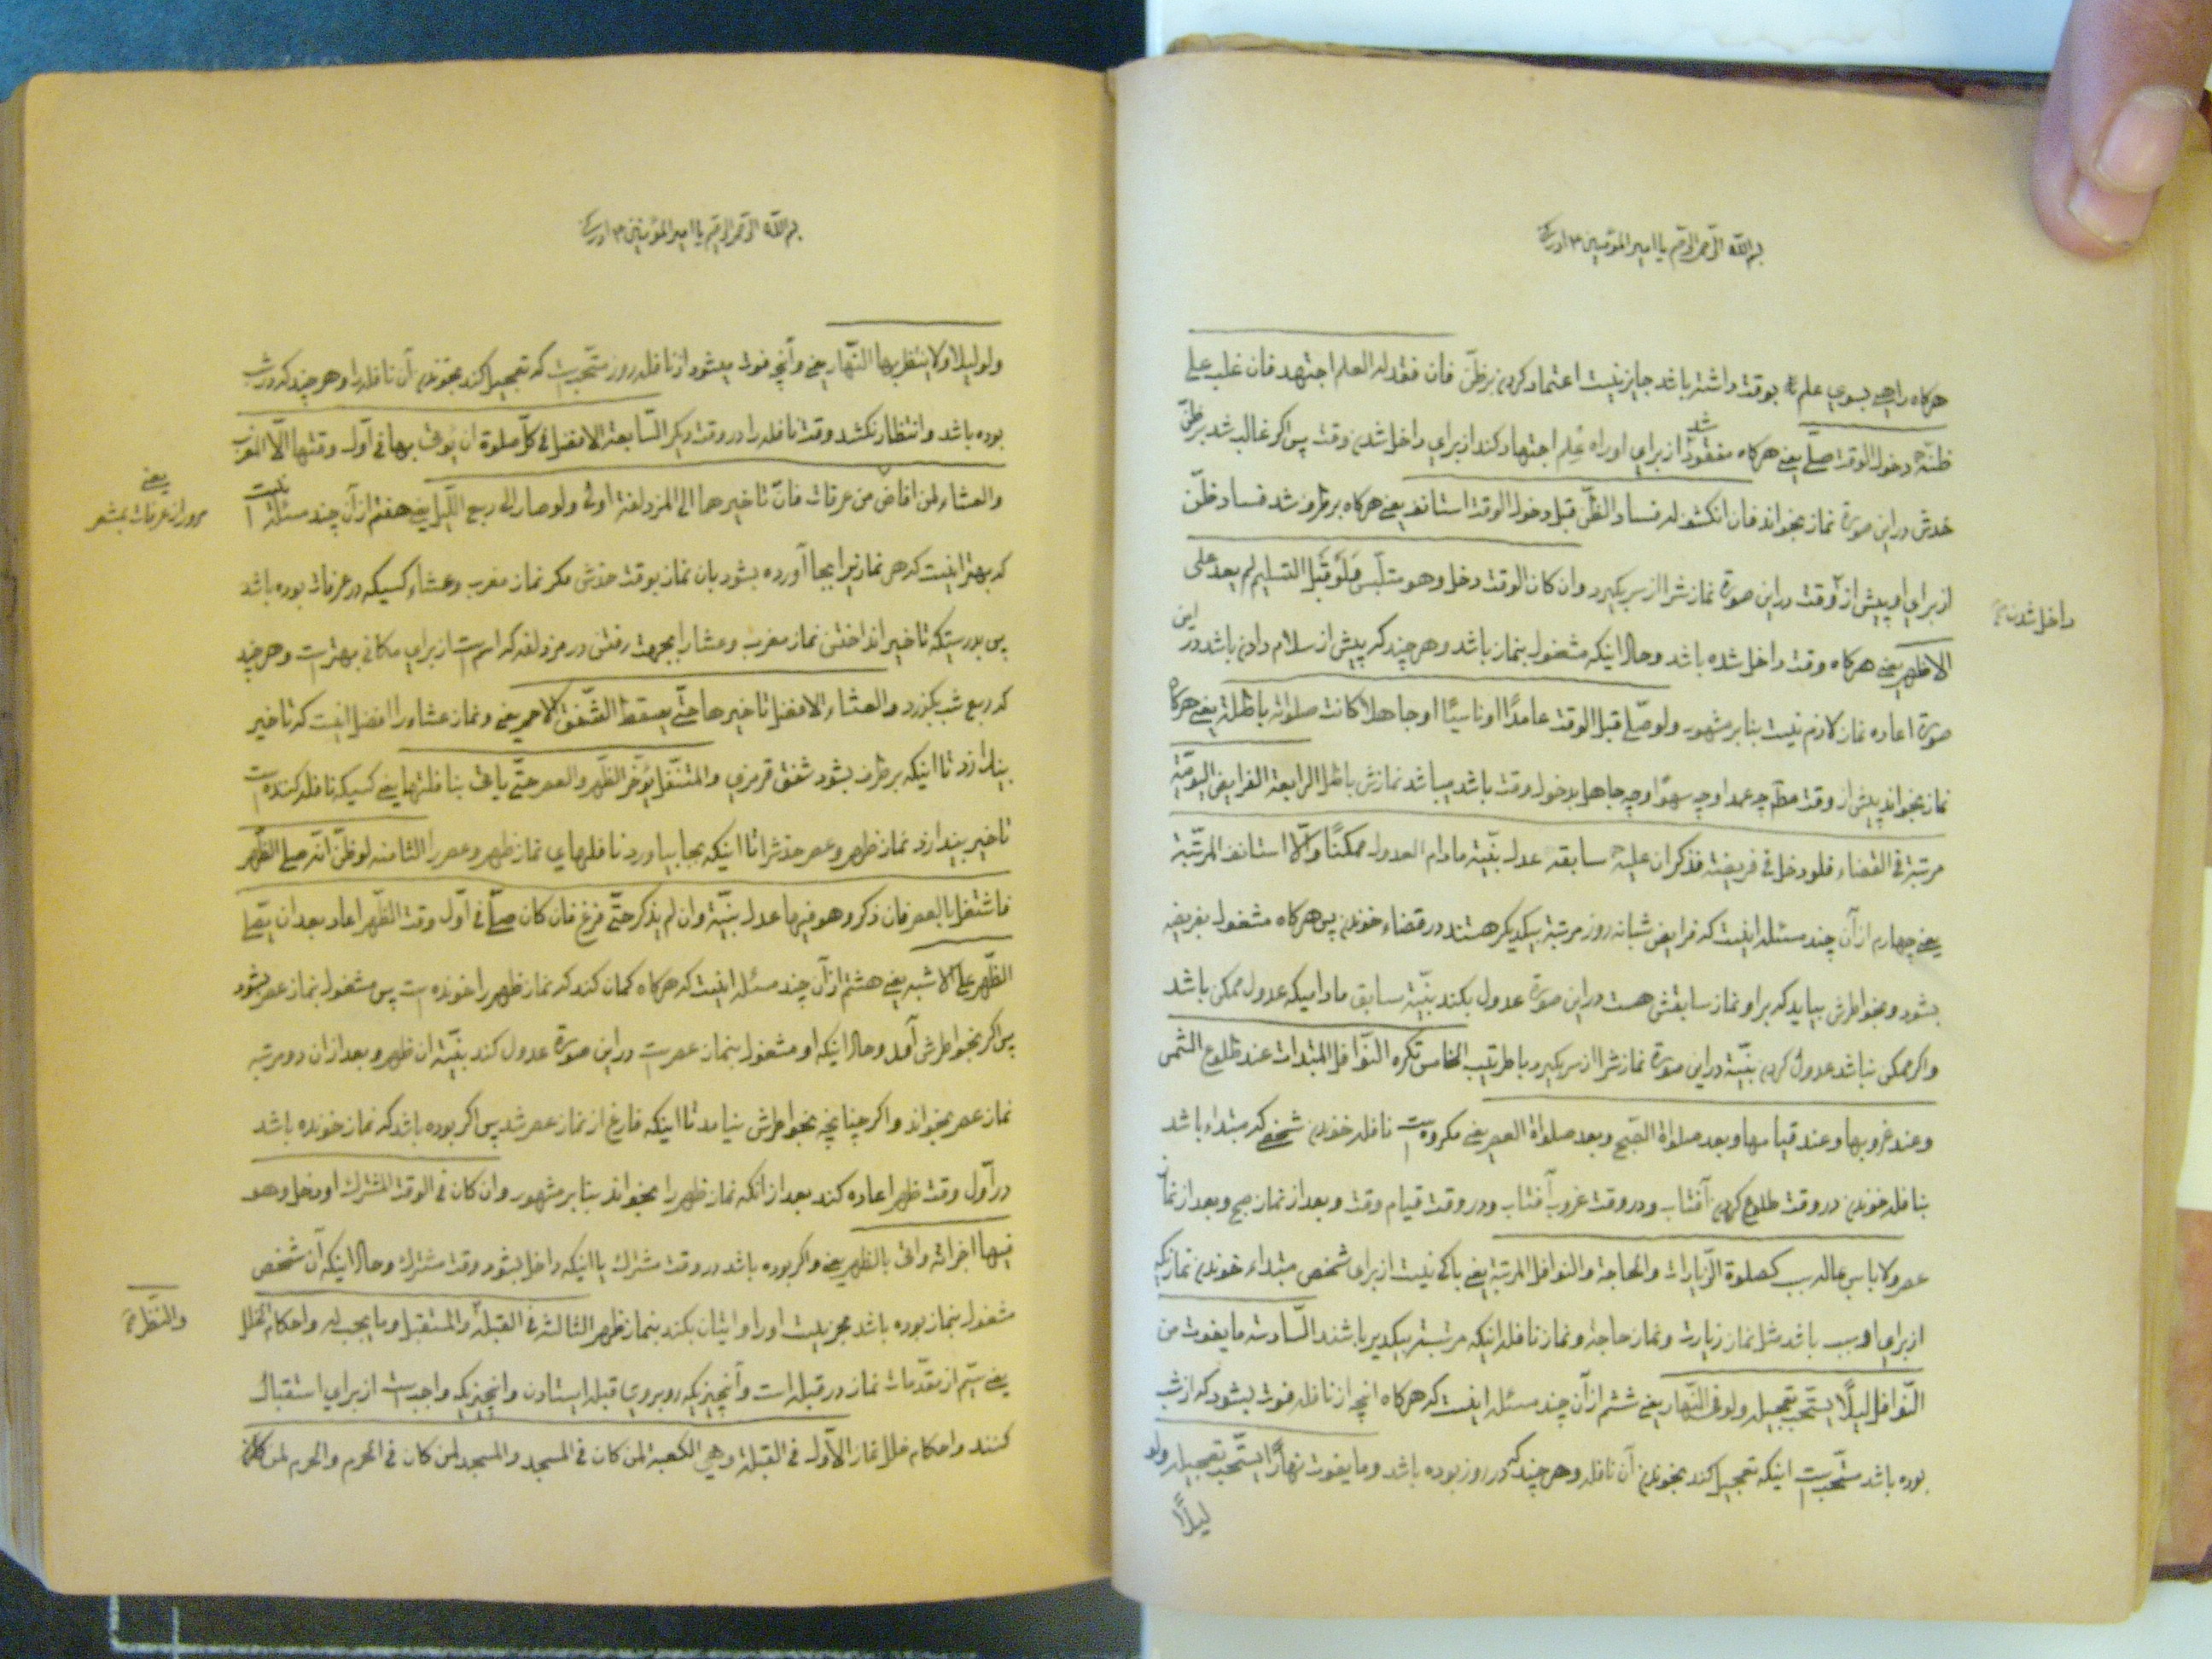 بسم الله الرحمن الرحیم یا امیر المؤمنین ادرکنی
هرکاه راهی بسوی علم بوقت داشته باشد جایز نیست اعتماد کردن برظن فان فقد له العلم اجتهد فان غلب علی
ظنه دخول الوقت صلی یعنی هرکاه مفقود شد از برای او راه علم اجتهاد کند از برای داخل شدن وقت پس اکر غالب شد برظن
خدش در این صورة نماز بخواند فان انکشف له فساد الظن قبل دخول الوقت استانف یعنی هرکاه برطرف شد فساد ظن
از برای او پیش از وقت در این صورة نمازش را از سر بکیرد وان کان الوقت دخل وهو متلبس ولو قبل التسلیم لم یعد علی
داخل شدن
الاظهر یعنی هرکاه وقت داخل شده باشد وحال اینکه مشغول بنماز باشد وهرچند که پیش از سلام دادن باشد در این
صورة اعاده نماز لازم نیست بنابر مشهور ولو صلی قبل الوقت عامدًا او ناسیًا او جاهلا کانت صلوته باطلة یعنی هرکاه
نماز بخواند پیش از وقت مط چه عمدا وچه سهوًا وچه جاهل بدخول وقت باشد میباشد نمازش باطل الرابعة الفرایض الیومیة
مرتبة فی القضاء فلو دخل فی فریضة فذکر ان علیه سابقه عدل بنیته مادام العدول ممکنًا والّا استانف المرتبة
یعنی چهارم از آن چند مسئله اینست که فرایض شبانه روز مرتبة بیکدیکر هستند در قضاء خوندن پس هرکاه مشغول بفریضه
بشود وبخواطرش بیاید که براو نماز سابقش هست در این صورة عدول بکند بنیته سابق مادامیکه عدول ممکن باشد
واکر ممکن نباشد عدول کردن بنیته در این صورة نمازش را از سر بکیرد باطرتیب الخامس تکره النوافل المبتدات عند طلوع الشمس
وعند غروبها وعند قیامها وبعد صلواة الصبح وبعد صلواة العصر یعنی مکروه است نافله خوندن شخصی که مبتداء باشد
بنافله خوندن در وقت طلوع کردن آفتاب ودر وقت غروب آفتاب ودر وقت قیام وقت وبعد از نماز صبح وبعد از نماز
عصر ولا باس بماله سبب کصلوة الزیارات والحاجة والنوافل المرتبة یعنی باکی نیست از برای شخص مبتداء خوندن نمازیکه
از برای او سبب باشد مثل نماز زیارت ونماز حاجة ونماز نافله اینکه مرتبته بیکدیر باشند السّادسة ما یفوت من
النّوافل لیلًا یستحب تعجیله ولو فی النّهار یعنی ششم از آن چند مسئله اینست که هرکاه انچه از نافله فوت بشود که از شب
بوده باشد مستحب است اینکه تعجیل کند بخوندن آن نافله وهرچند که در روز بوده باشد وما یفوت نهارًا یستحب تعجیله ولو
لیلًا
بسم الله الرحمن الرحیم یا امیر المؤمنین ادرکنی
ولو لیلا ولا ینتظر بها النّهار یعنی وآنچه فوت میشود از نافله روز مستحب است که تعجیل کند بخوندن آن نافله را وهرچند که در شب
بوده باشد وانتظار نکشد وقت نافله را در وقت دیکر السّابعة الافضل فی کل صلوة ان یؤتی بها فی اول وقتها الّا المغرب
والعشاء لمن افاض من عرفات فان تاخیرهما الی المزدلفة اولی ولو صار الی ربع اللّیل یعنی هفتم از آن چند مسئله اینست
یعنی
مرور از عرفات بمشعر
که بهتر اینست که هر نمازیرا بجا آورده بشود بان نماز بوقت خدش مکر نماز مغرب وعشاء کسیکه در عرفات بوده باشد
پس بدرستیکه تاخیر انداختن نماز مغرب وعشا را بجهت رفتن در مزدلفه که اسم است از برای مکانی بهتر است وهرچند
که ربع شب بکزرد والعشاء الافضل تاخیرها حتّی یسقط الشّفق الاحمر یعنی ونماز عشاء را افضل اینست که تاخیر
بیندازد تا اینکه برطرف بشود شفق قرمزی والمتنفّل یؤخّر الظّهر والعصر حتّی یاتی بنافلتها یعنی کسیکه نافله کننده است
تاخیر بیندازد نماز ظهر وعصر خدش را تا اینکه بجا بیاورد نافلهای نماز ظهر وعصر را الثامنه لو ظنّ انّه صلی الظّهر
فاشتغل بالعصر فان ذکر وهو فیها عدل بنیّة وان لم یذکر حتّی فرغ فان کان صلّی فی اوّل وقت الظّهر اعاد بعد ان یصلی
الظّهر علی الاشبه یعنی هشتم از آن چند مسئله اینست که هرکاه کمان کند که نماز ظهر را خونده است پس مشغول بنماز عصر بشود
پس اکر بخواطرش آمد وحال اینکه او مشغول بنماز عصر است در این صورة عدول کند بنیّة ان ظهر وبعد از ان دو مرتبه
نماز عصر بخواند واکر چنانچه بخواطرش نیامد تا اینکه فارغ از نماز عصر شد پس اکر بوده باشد که نماز خونده باشد
در اوّل وقت ظهر اعاده کند بعد از انکه نماز ظهر را بخواند بنابر مشهور وان کان فی الوقت المشترک او دخل وهو
فیها اجزاته واتی بالظهر یعنی واکر بوده باشد در وقت مشترک یا اینکه داخل بشود وقت مشترک وحال اینکه آن شخص
مشغول بنماز بوده باشد مجزیست اورا وایتان بکند بنماز ظهر الثالثة فی القبلة والمستقبل وما یجب له واحکام الخلل
والنّظر
یعنی سیّم از مقدّمات نماز در قبله است وآنچیزیکه روبروی قبله ایستادن وانچیزیکه واجب است از برای استقبال
کنند واحکام خلل نماز الاوّل فی القبلة وهی الکعبة لمن کان فی المسجد والمسجد لمن کان فی الحرم والحرم لمن کان